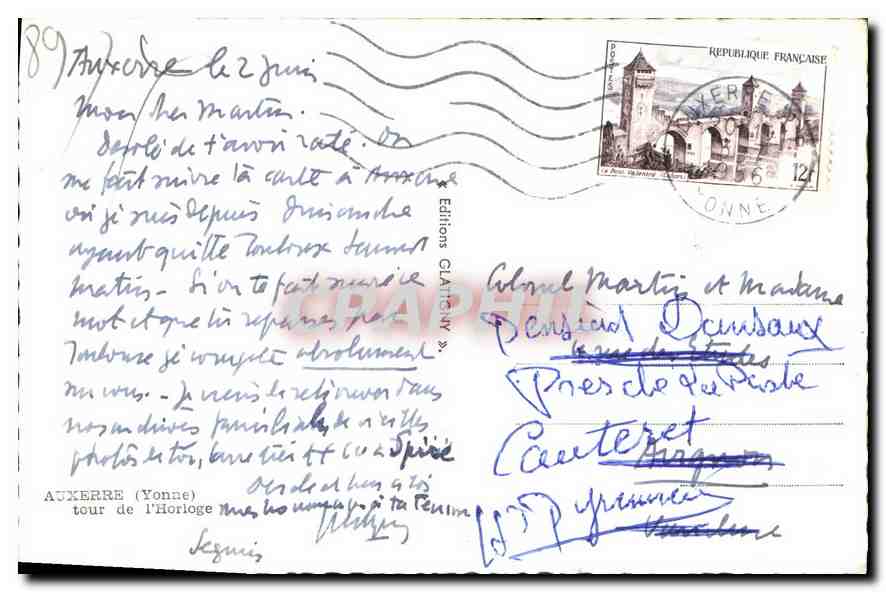 89
Auxerre le 2 juin
Mon cher Martin.
Désolé de t'avoir raté. On
me fait suivre ta carte à Auxerre
où je suis depuis dimanche
ayant quitté Toulouse samedi
matin - Si on te fait suivre ce
mot et que tu repasses par
Toulouse je compte absolument
sur vous. - Je viens de retrouver dans
nos archives familiales de vieilles
photos de toi,
à Spire
mes hommages à ta femme
Seguin
AUXERRE (Yonne)
tour de l'Horloge
« Editions GLATIGNY ».
POSTES
REPUBLIQUE FRANÇAISE
Le Pont Valentré (Cahors)
12f
AUXERRE
YONNE
CPAPHIL
Colonel Martin et Madame
Pension Dansaux
rue des Etudes
Près de la Poste
Cauteret
Avignon
Htes Pyrénées
Vaucluse